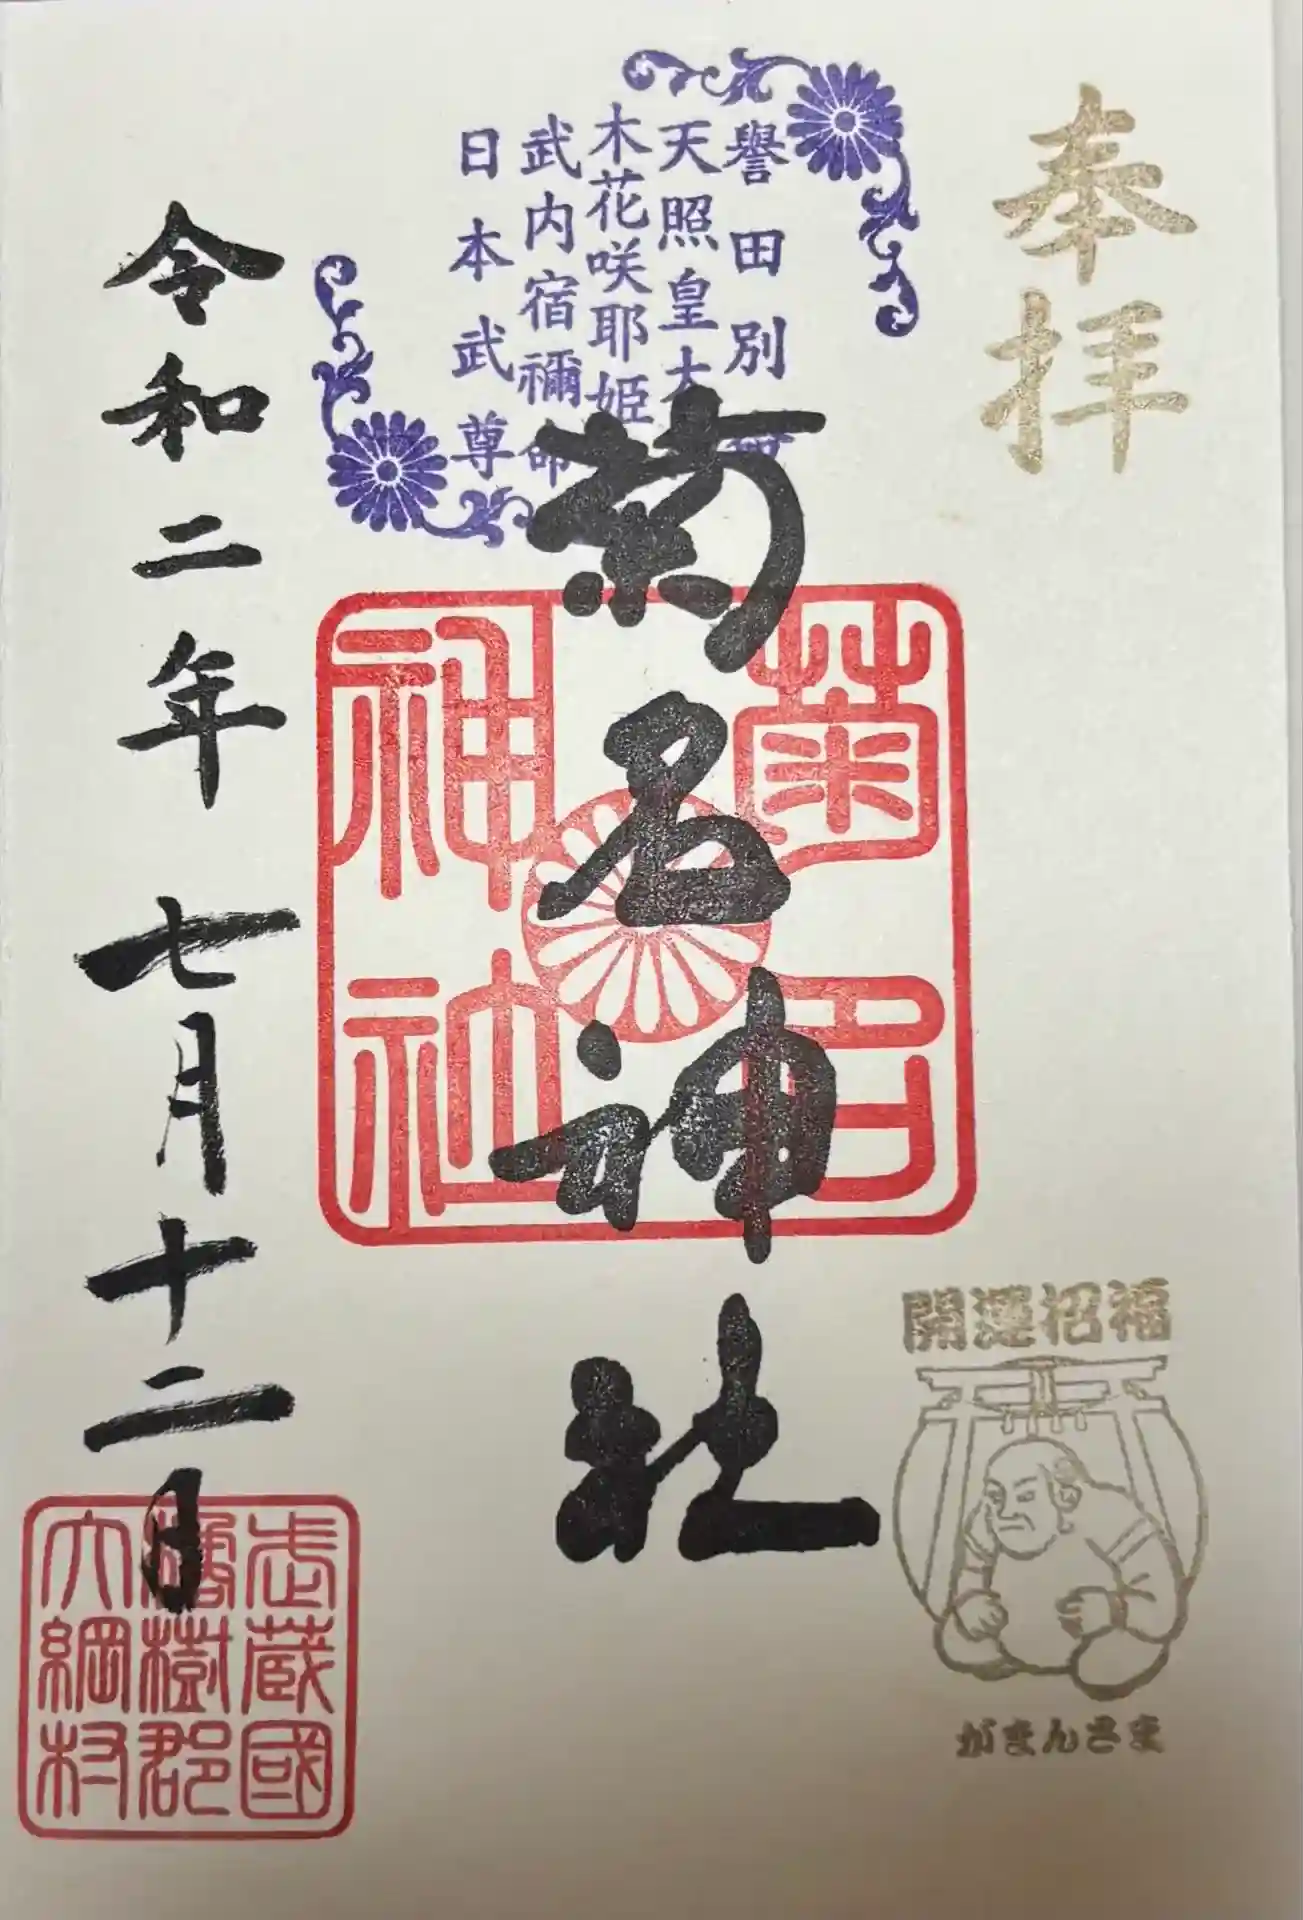 奉拝
譽田別
天照皇大
木花咲耶姫
武内宿禰命
日本武尊
菊名神社
菊名
神社
開運招福
がまんさま
令和二年 七月十二日
武蔵國
橘樹郡
大綱村